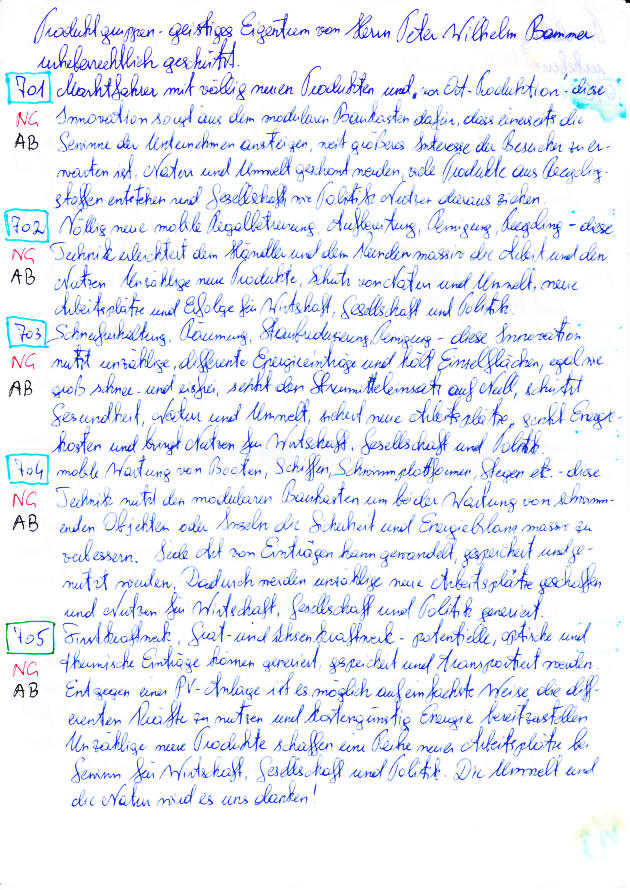 Produktgruppen - geistiges Eigentum von Herrn Peter Wilhelm Bammer
urheberrechtlich geschützt.
701 Marktfahrer mit völlig neuen Produkten und "vor Ort-Produktion", diese
NG Innovation sorgt aus dem modularen Baukasten dafür, dass einerseits die
AB Gewinne der Unternehmen ansteigen, weit größeres Interesse der Besucher zu er-
warten ist, Natur und Umwelt geschont werden, viele Produkte aus Recycling-
stoffen entstehen und Gesellschaft wie Politik Nutzen daraus ziehen.
702 Völlig neue mobile Regalbetreuung, Aufbereitung, Reinigung, Recycling - diese
NG Technik erleichtert dem Händler und dem Kunden massiv die Arbeit und den
AB Nutzen. Unzählige neue Produkte, Schutz von Natur und Umwelt, neue
Arbeitsplätze und Erfolge für Wirtschaft, Gesellschaft und Politik.
703 Schneefreihaltung, Räumung, Staubreduzierung, Reinigung - diese Innovation
NG nutzt unzählige, differente Energieeinträge und hält Einzelflächen, egal wie
AB groß schnee- und eisfrei, senkt den Streumitteleinsatz auf Null, schützt
Gesundheit, Natur und Umwelt, sichert neue Arbeitsplätze, senkt Energie-
kosten und bringt Nutzen für Wirtschaft, Gesellschaft und Politik.
704 mobile Wartung von Booten, Schiffen, Schwimmplattformen, Stegen etc. - diese
NG Technik nutzt den modularen Baukasten um bei der Wartung von schwimm-
AB enden Objekten oder Inseln die Sicherheit und Energiebilanz massiv zu
verbessern. Jede Art von Einträgen kann gewandelt, gespeichert und ge-
nutzt werden. Dadurch werden unzählige neue Arbeitsplätze geschaffen
und Nutzen für Wirtschaft, Gesellschaft und Politik generiert.
705 Firstkraftwerk, Grat- und Ichsenkraftwerk - potentielle, optische und
NG thermische Einträge können generiert, gespeichert und transportiert werden.
AB Entgegen einer PV-Anlage ist es möglich auf einfachste Weise die diff-
erenten Kräfte zu nutzen und kostengünstig Energie bereitzustellen
Unzählige neue Produkte schaffen eine Reihe neuer Arbeitsplätze bei
Gewinn für Wirtschaft, Gesellschaft und Politik. Die Umwelt und
die Natur wird es uns danken!